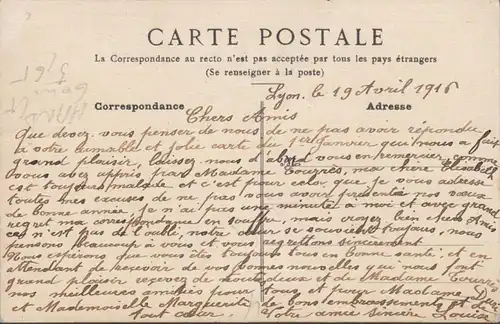 CARTE POSTALE
La Correspondance au recto n'est pas acceptée par tous les pays étrangers
(Se renseigner à la poste)
Lyon, le 19 Avril 1916
Correspondance
Adresse
Chers Amis
Que devez vous penser de nous de ne pas avoir répondu
à votre aimable et jolie carte du 1er Janvier qui nous a fait
grand plaisir, laissez nous d'abord vous en remercier, comme
vous avez appris par Madame Tourrès, ma chère Elisabeth
est toujours malade et c'est pour cela que je vous adresse
toutes mes excuses de ne pas vous avoir présenté nos vœux
de bonne année. Je n'ai pas une minute à moi et avec grand
regret ma correspondance en souffre, mais croyez bien chers Amis
que ce n'est pas de l'oubli, notre cœur se souvient toujours, nous
pensons beaucoup à vous et vous regrettons sincèrement.
Nous espérons que vous êtes toujours tous en bonne santé, et en
attendant de recevoir de vos bonnes nouvelles qui nous font
grand plaisir recevez de nous deux et de Madame Tourrès
nos meilleures amitiés pour tous et pour Madame
et Mademoiselle Marguerite de bons embrassements de
tout cœur. Votre amie sincère Louise